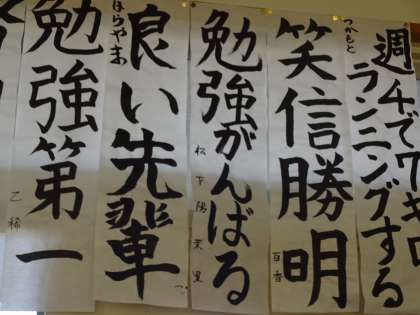 週4で7キロ
ランニングする
つかもと
笑信勝明
百香
勉強がんばる
良い先輩
はらやま
勉強第一
乙稀